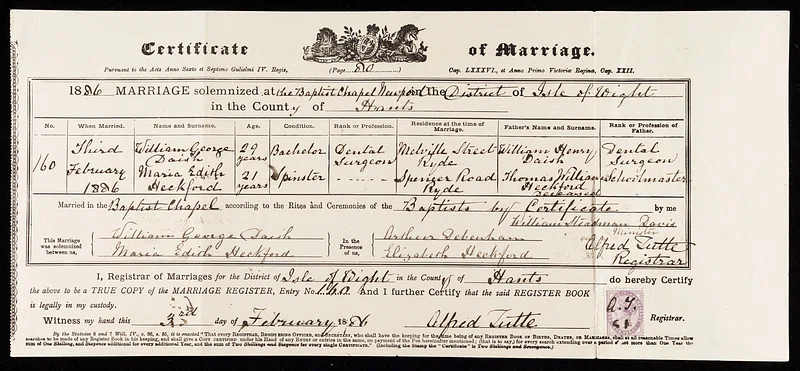 Certificate of Marriage.
Pursuant to the Acts Anno Sexto et Septimo Gulielmi IV. Regis, (Page 80) Cap. LXXXVI., et Anno Primo Victoriæ Reginæ, Cap. XXII.
1886 MARRIAGE solemnized at the Baptist Chapel Newport in the District of Isle of Wight
in the County of Hants
No. When Married. Name and Surname. Age. Condition. Rank or Profession. Residence at the time of Marriage. Father's Name and Surname. Rank or Profession of Father.
160 Third February 1886
William George Daish 29 years Bachelor Dental Surgeon Melville Street Ryde William Henry Daish Dental Surgeon
Maria Edith Heckford 21 years Spinster Spencer Road Ryde Thomas William Heckford deceased Schoolmaster
Married in the Baptist Chapel according to the Rites and Ceremonies of the Baptists by Certificate by me
William Steadman Davis
Minister
This Marriage was solemnized between us,
William George Daish
Maria Edith Heckford
In the Presence of us,
Arthur Debenham
Elizabeth Heckford
Alfred Tutte
Registrar
I, Registrar of Marriages for the District of Isle of Wight in the County of Hants do hereby Certify
the above to be a TRUE COPY of the MARRIAGE REGISTER, Entry No. 160 And I further Certify that the said REGISTER BOOK
is legally in my custody.
Witness my hand this 3rd day of February 1886 Alfred Tutte Registrar.
A.T.
By the Statutes 6 and 7 Will. IV., c. 86, s. 35, it is enacted "That every REGISTRAR, REGISTERING OFFICER, and SECRETARY, who shall have the keeping for the time being of any REGISTER BOOK OF BIRTHS, DEATHS, OR MARRIAGES, shall at all reasonable Times allow
searches to be made of any Register Book in his keeping, and shall give a COPY certified under his Hand of any ENTRY or ENTRIES in the same, on payment of the Fee hereinafter mentioned; (that is to say,) for every search extending over a period not more than One Year the
sum of One Shilling, and Sixpence additional for every additional Year, and the Sum of Two Shillings and Sixpence for every single CERTIFICATE." (Including the Stamp the "Certificate" is Two Shillings and Sevenpence.)